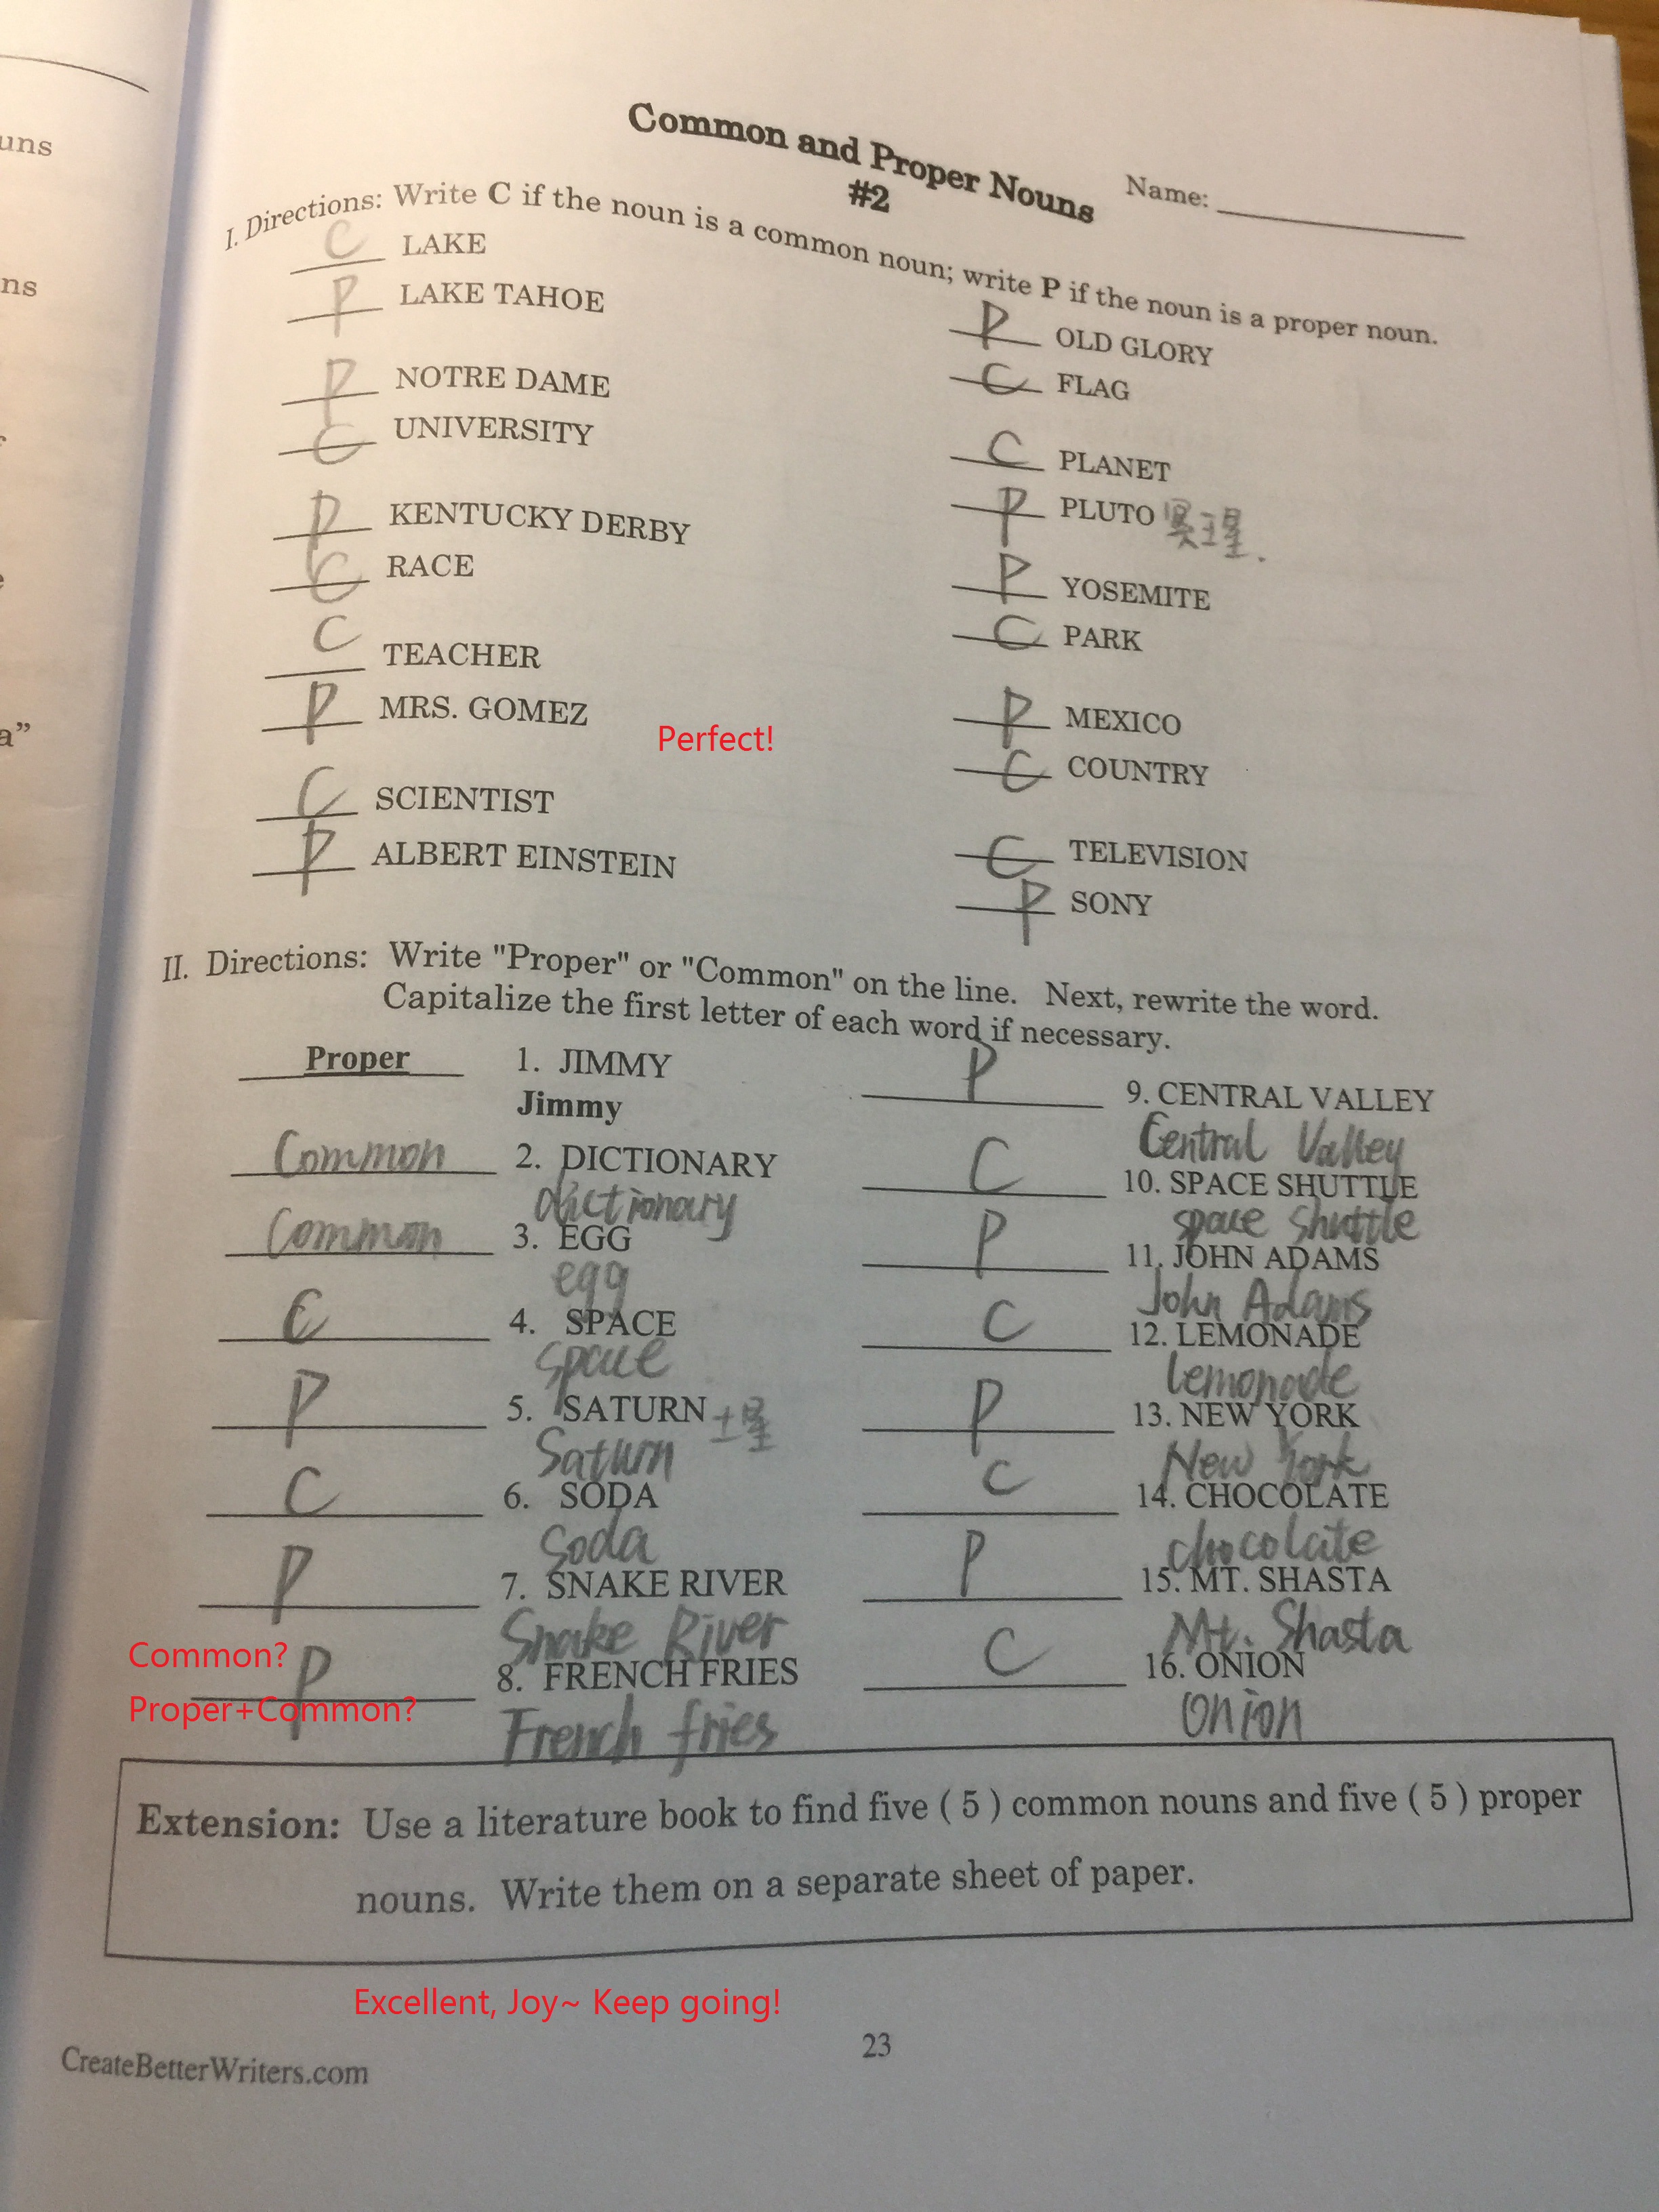 uns
ns
a”
Common and Proper Nouns
#2
Name:
I. Directions: Write C if the noun is a common noun; write P if the noun is a proper noun.
C LAKE
P LAKE TAHOE
P NOTRE DAME
C UNIVERSITY
P KENTUCKY DERBY
C RACE
C TEACHER
P MRS. GOMEZ
C SCIENTIST
P ALBERT EINSTEIN
Perfect!
P OLD GLORY
C FLAG
C PLANET
P PLUTO
P YOSEMITE
C PARK
P MEXICO
C COUNTRY
C TELEVISION
P SONY
II. Directions: Write "Proper" or "Common" on the line. Next, rewrite the word.
Capitalize the first letter of each word if necessary.
Proper 1. JIMMY
Jimmy
Common 2. DICTIONARY
dictionary
Common 3. EGG
egg
C 4. SPACE
space
P 5. SATURN 土星
Saturn
C 6. SODA
soda
P 7. SNAKE RIVER
Snake River
Common?
P 8. FRENCH FRIES
Proper+Common?
French fries
P 9. CENTRAL VALLEY
Central Valley
C 10. SPACE SHUTTLE
space shuttle
P 11. JOHN ADAMS
John Adams
C 12. LEMONADE
lemonade
P 13. NEW YORK
New York
C 14. CHOCOLATE
chocolate
P 15. MT. SHASTA
Mt. Shasta
C 16. ONION
onion
Extension: Use a literature book to find five ( 5 ) common nouns and five ( 5 ) proper
nouns. Write them on a separate sheet of paper.
Excellent, Joy~ Keep going!
CreateBetterWriters.com
23